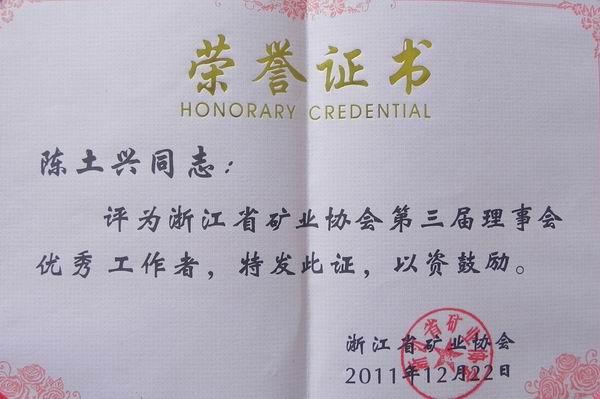 荣誉证书
HONORARY CREDENTIAL
陈土兴同志：
评为浙江省矿业协会第三届理事会
优秀工作者，特发此证，以资鼓励。
浙江省矿业协会
2011年12月22日
浙江省矿业协会